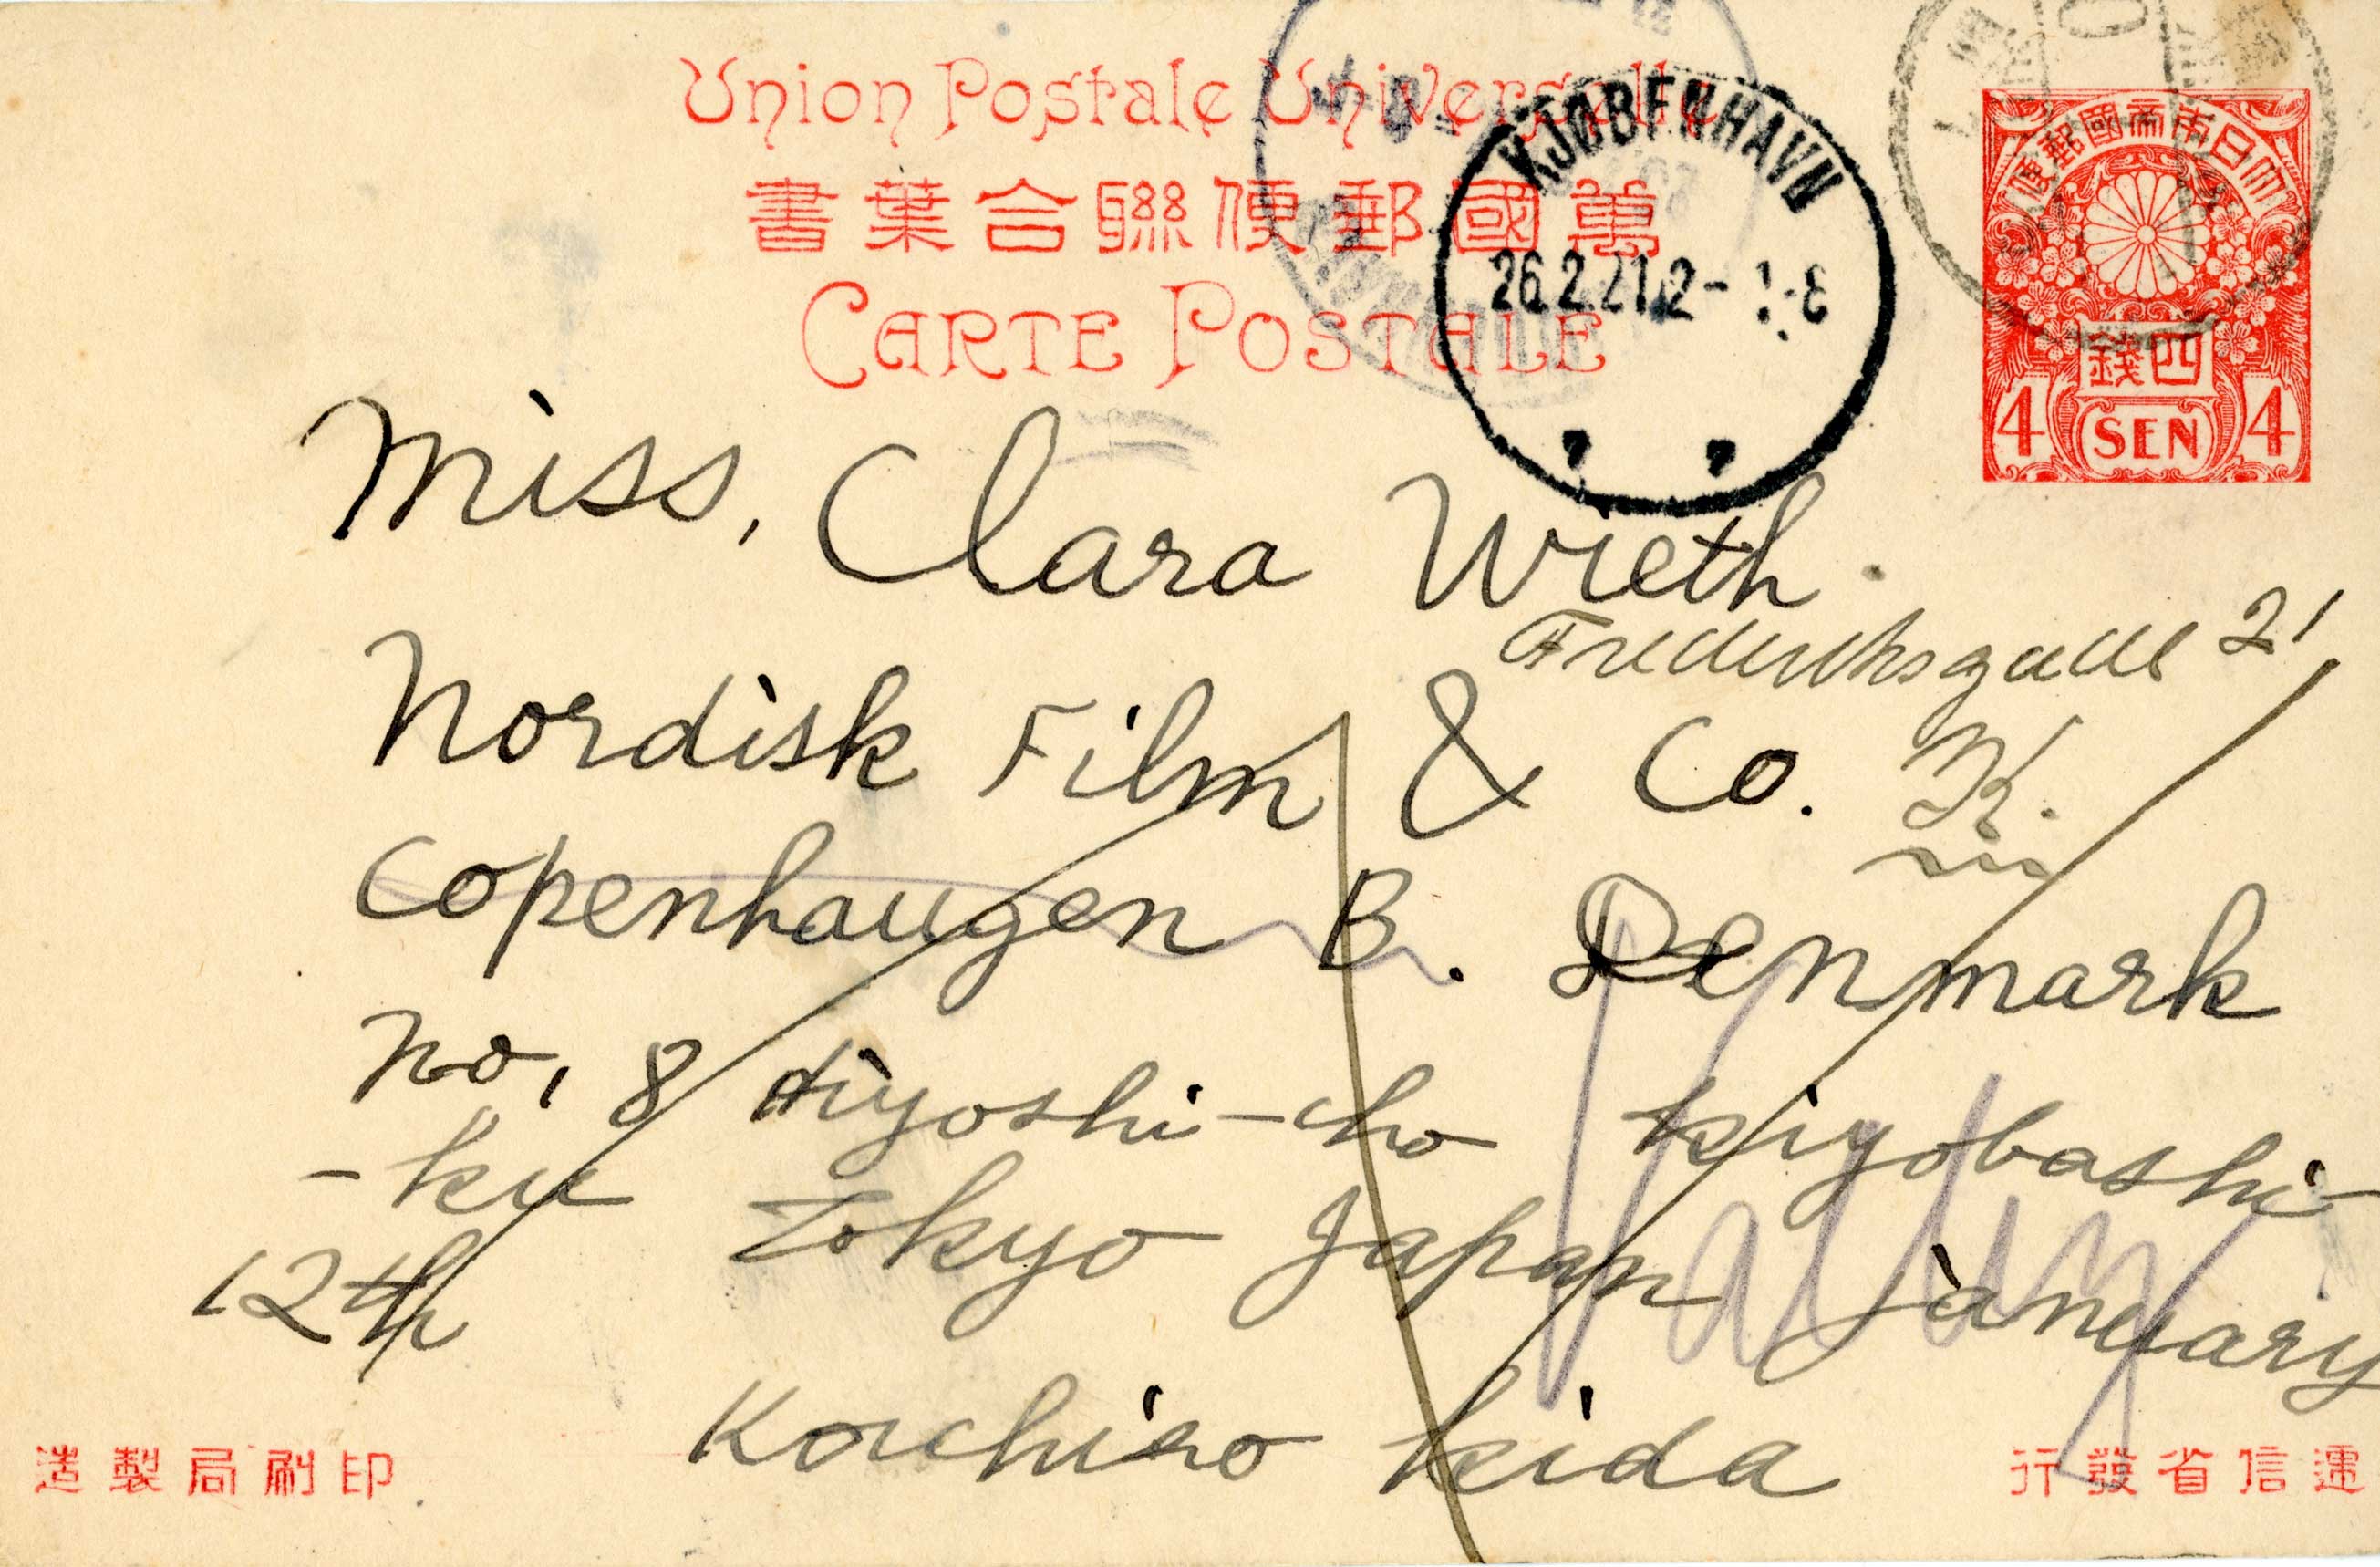 Union Postale Universelle
書葉合聯便郵國萬
CARTE POSTALE
KJØBENHAVN
26.2.21.12-
便郵國帝本日大
錢四
4 SEN 4
Miss, Clara Wieth
21
Nordisk Film & Co.
K.
Copenhaugen B. Denmark
No, 8 Hiyoshi-cho Kiyobashi-
-ku Tokyo Japan January
12th
Koichiro Kida
造製局刷印
行發省信遞